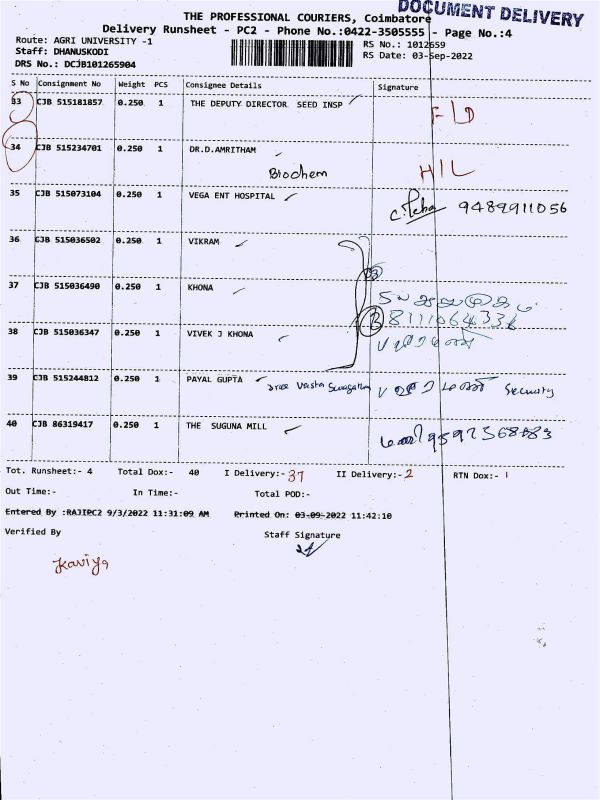 THE PROFESSIONAL COURIERS, Coimbatore
DOCUMENT DELIVERY
Delivery Runsheet - PC2 - Phone No.:0422-3505555 - Page No.:4
Route: AGRI UNIVERSITY -1
RS No.: 1012659
Staff: DHANUSKODI
RS Date: 03-Sep-2022
DRS No.: DCJB101265904
S No Consignment No Weight PCS Consignee Details Signature
33 CJB 515181857 0.250 1 THE DEPUTY DIRECTOR SEED INSP
34 CJB 515234701 0.250 1 DR.D.AMRITHAM
Biochem H/L
35 CJB 515073104 0.250 1 VEGA ENT HOSPITAL
9489911056
36 CJB 515036502 0.250 1 VIKRAM
37 CJB 515036490 0.250 1 KHONA
38 CJB 515036347 0.250 1 VIVEK J KHONA
39 CJB 515244812 0.250 1 PAYAL GUPTA Security
40 CJB 86319417 0.250 1 THE SUGUNA MILL
Tot. Runsheet:- 4 Total Dox:- 40 I Delivery:- 37 II Delivery:- 2 RTN Dox:- 1
Out Time:- In Time:- Total POD:-
Entered By :RAJIPC2 9/3/2022 11:31:09 AM Printed On: 03-09-2022 11:42:10
Verified By Staff Signature
Kaviya